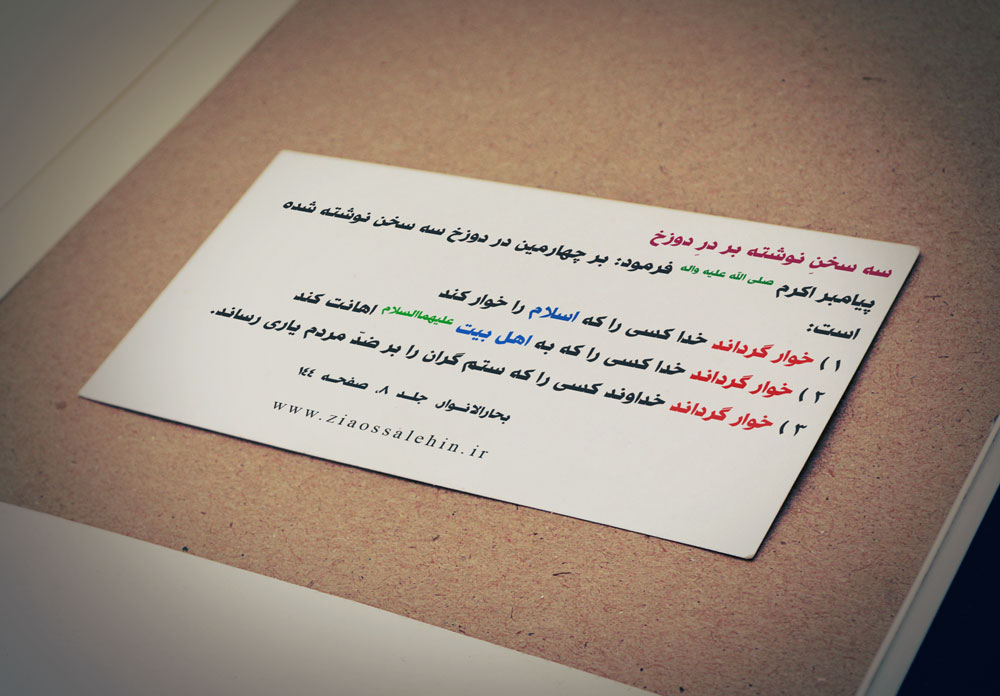 سه سخنِ نوشته بر درِ دوزخ
پیامبر اکرم صلی الله علیه واله فرمود: بر چهارمین در دوزخ سه سخن نوشته شده
است:
۱) خوار گرداند خدا کسی را که اسلام را خوار کند
۲) خوار گرداند خدا کسی را که به اهل بیت علیهماالسلام اهانت کند
۳) خوار گرداند خداوند کسی را که ستم گران را بر ضدّ مردم یاری رساند.
بحارالانوار جلد ۸، صفحه ۱۴۴
www.ziaossalehin.ir